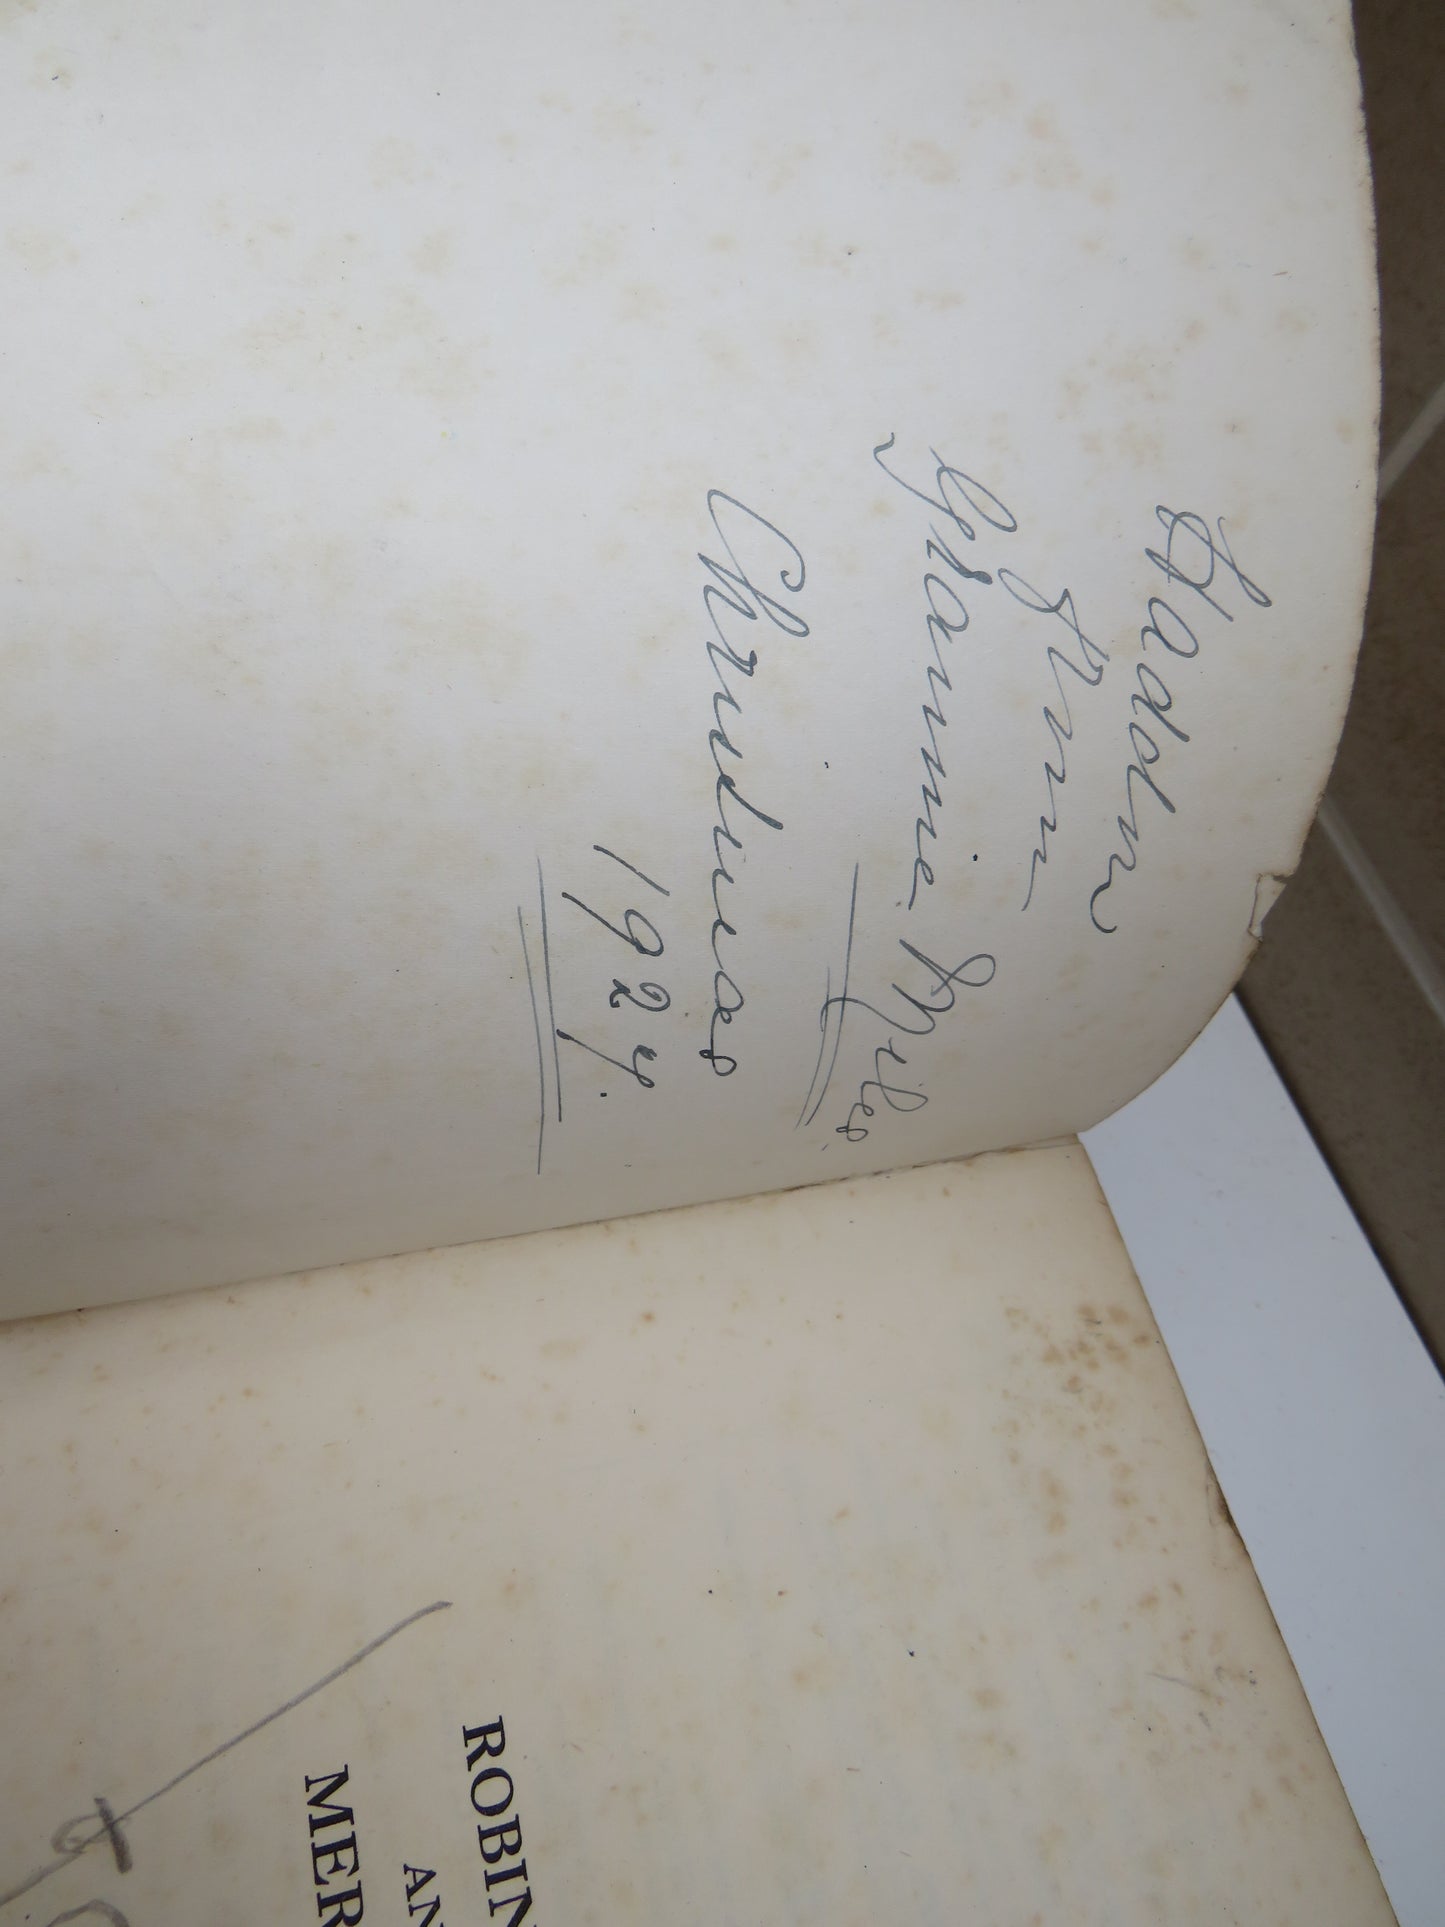 Haddon
from
Grannie Miles
Christmas
1924.
ROBIN
AN
MER